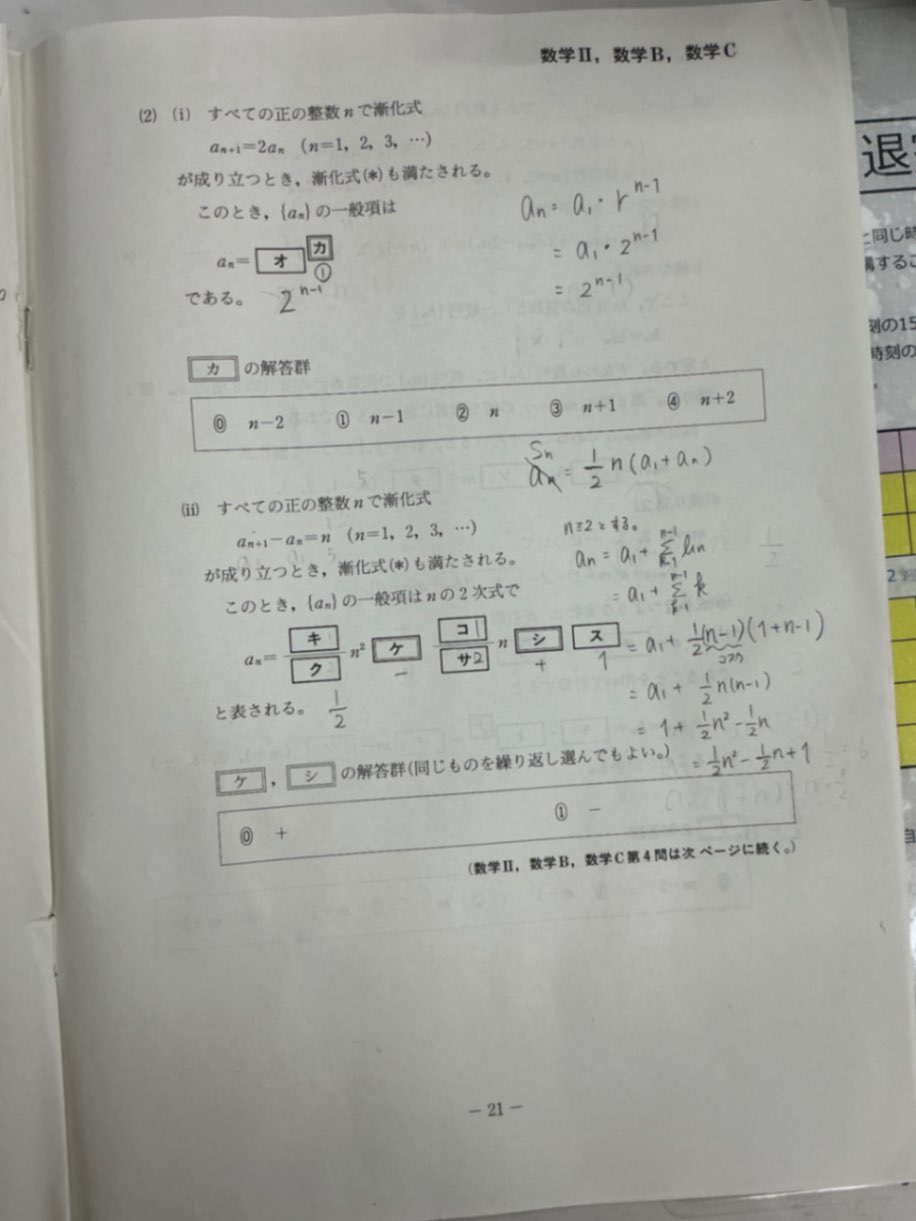 数学Ⅱ，数学B，数学C
(2) (i) すべての正の整数 n で漸化式
aₙ₊₁=2aₙ (n=1, 2, 3, …)
が成り立つとき，漸化式(*)も満たされる。
このとき，{aₙ}の一般項は
aₙ= オ カ
①
である。 2ⁿ⁻¹
aₙ = a₁・rⁿ⁻¹
= a₁・2ⁿ⁻¹
= 2ⁿ⁻¹
カ の解答群
⓪ n−2 ① n−1 ② n ③ n+1 ④ n+2
Sₙ
aₙ = 1/2 n(a₁+aₙ)
(ii) すべての正の整数 n で漸化式
aₙ₊₁−aₙ=n (n=1, 2, 3, …)
が成り立つとき，漸化式(*)も満たされる。
このとき，{aₙ}の一般項は n の 2 次式で
aₙ= キ/ク n² ケ コ1/サ2 n シ ス
− + 1
と表される。 1/2
n≧2とする。
aₙ = a₁ + Σ
= a₁ + Σ k
= a₁ + 1/2(n−1)(1+n−1)
= a₁ + 1/2n(n−1)
= 1 + 1/2n² − 1/2n
= 1/2n² − 1/2n + 1
ケ ， シ の解答群(同じものを繰り返し選んでもよい。)
⓪ + ① −
(数学Ⅱ，数学B，数学C第4問は次ページに続く。)
− 21 −
退
と同じ時
講するこ
刻の15
時刻の